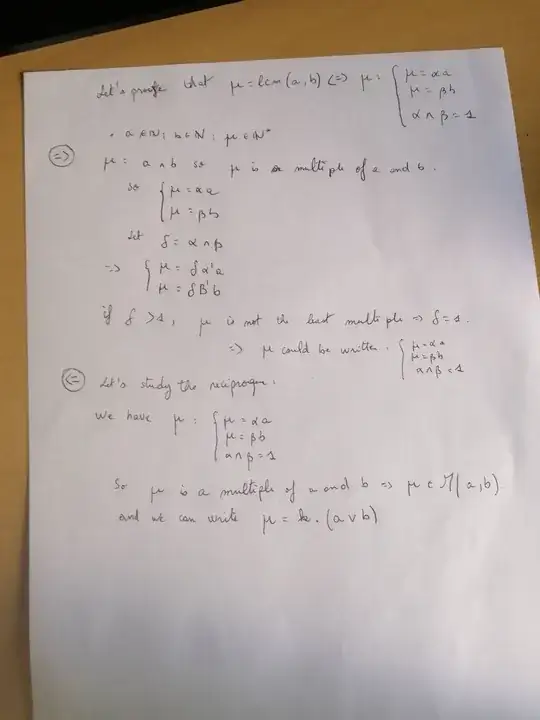 Let's proofe that μ = lcm(a, b) <=> μ: { μ = αa
μ = βb
α ∧ β = 1
• a ∈ ℕ; b ∈ ℕ; μ ∈ ℕ*
=>
μ = a ∧ b so μ is a multiple of a and b.
so { μ = αa
μ = βb
Let δ = α ∧ β
=> { μ = δα'a
μ = δβ'b
if δ > 1, μ is not the least multiple => δ = 1.
=> μ could be written. { μ = αa
μ = βb
α ∧ β = 1
<= Let's study the reciproque.
We have μ: { μ = αa
μ = βb
α ∧ β = 1
So μ is a multiple of a and b => μ ∈ M(a, b).
and we can write μ = k. (a ∨ b)